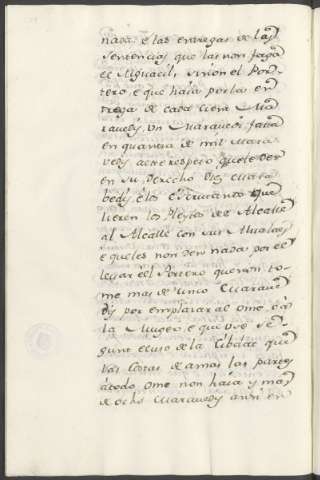 nada é las entregas de las
Sentencias que las non faga
el Alguacil, sinon el Por-
tero, e que haia por las en
trega de cada cien Ma
ravedis, un Maravedi fasta
en quantia de mil Mara
vedis, a este respeto quete der
en su Derecho Diez Mara
bedis, é los escrivanto que
lieren los Pleytos del Alcalle
al Alcalle con sus Alvalaes
e queles non den nada por el
levar é el Portero que non to-
me mas de cinco Marave
dis por emplazar al ome, o á
la Muger, e que uso Se-
gunt el uso de la Cibdat que
vas Cosas de amas las partes
á todo ome non haia y mas
de ocho Maravedis ansi en